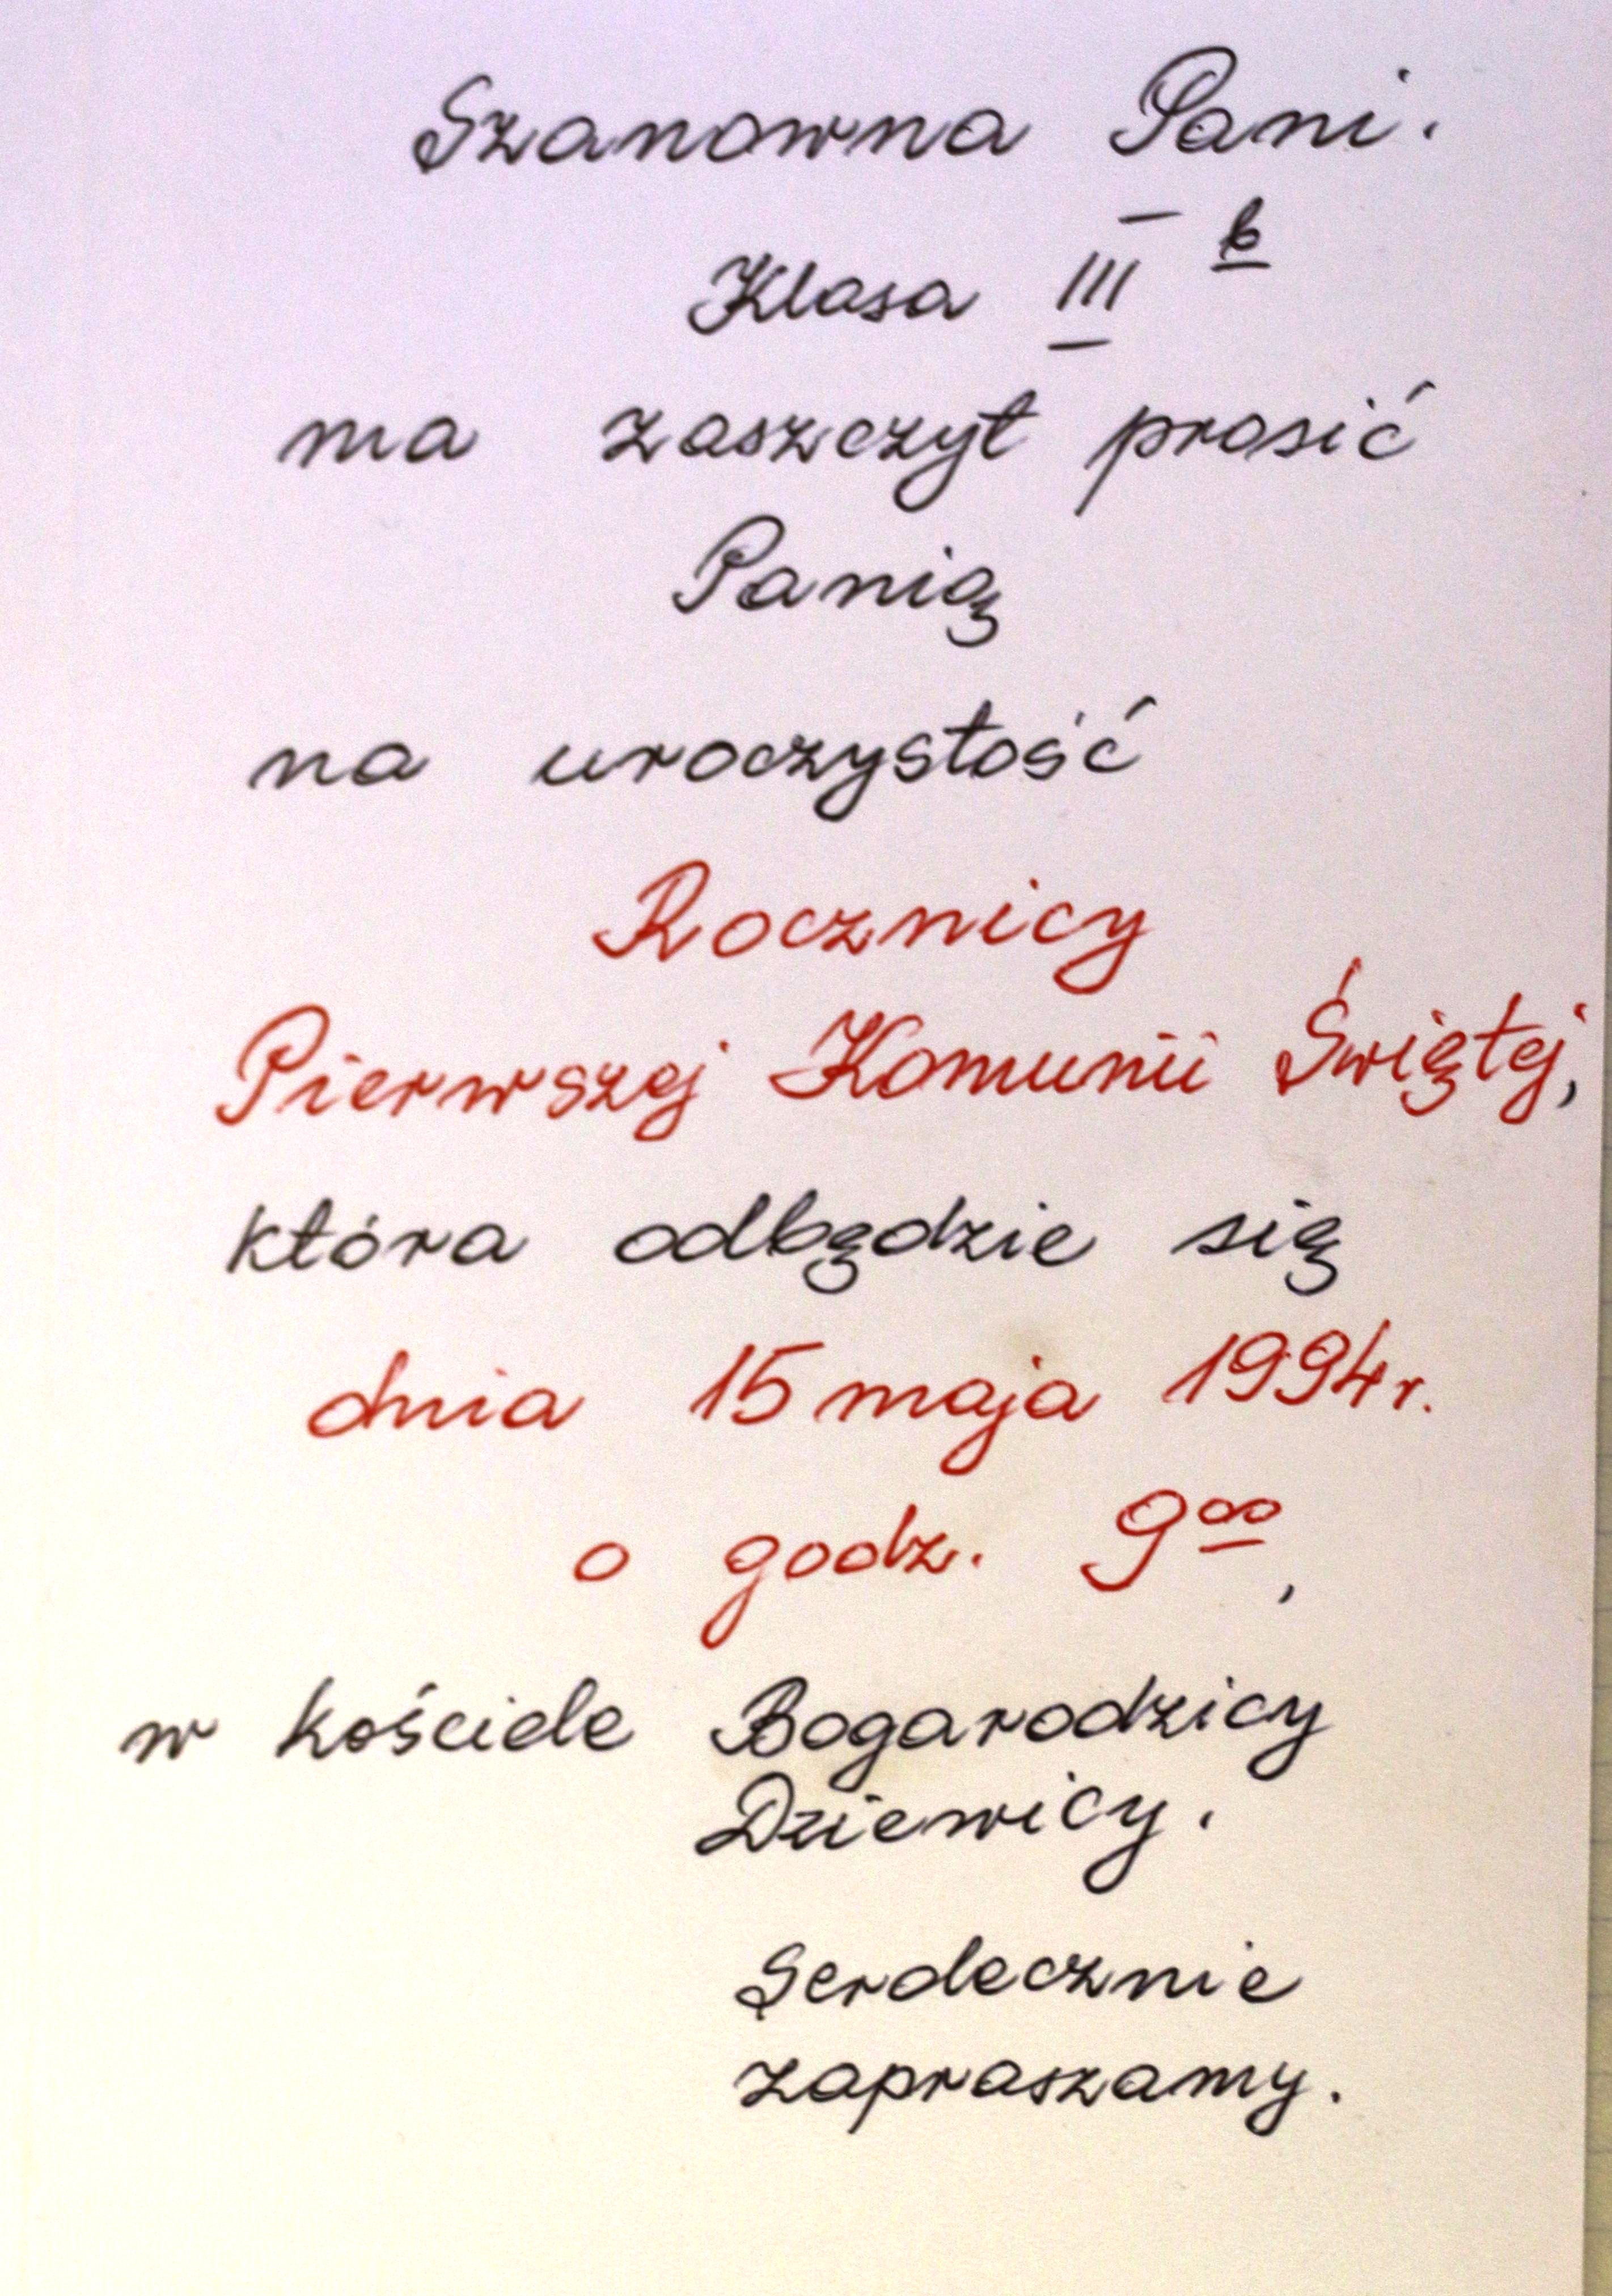 Szanowna Pani.
Klasa III b
ma zaszczyt prosić
Panią
na uroczystość
Rocznicy
Pierwszej Komunii Świętej,
która odbędzie się
dnia 15 maja 1994 r.
o godz. 9⁰⁰,
w kościele Bogarodzicy
Dziewicy.
Serdecznie
zapraszamy.